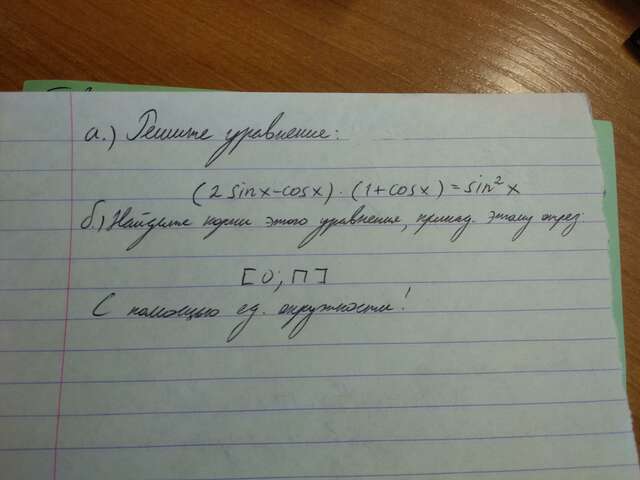 а.) Решите уравнение:
(2 sinx-cosx) · (1+cosx) = sin² x
б.) Найдите корни этого уравнения, принад. этому отрез.
[0; П]
С помощью ед. окружности!